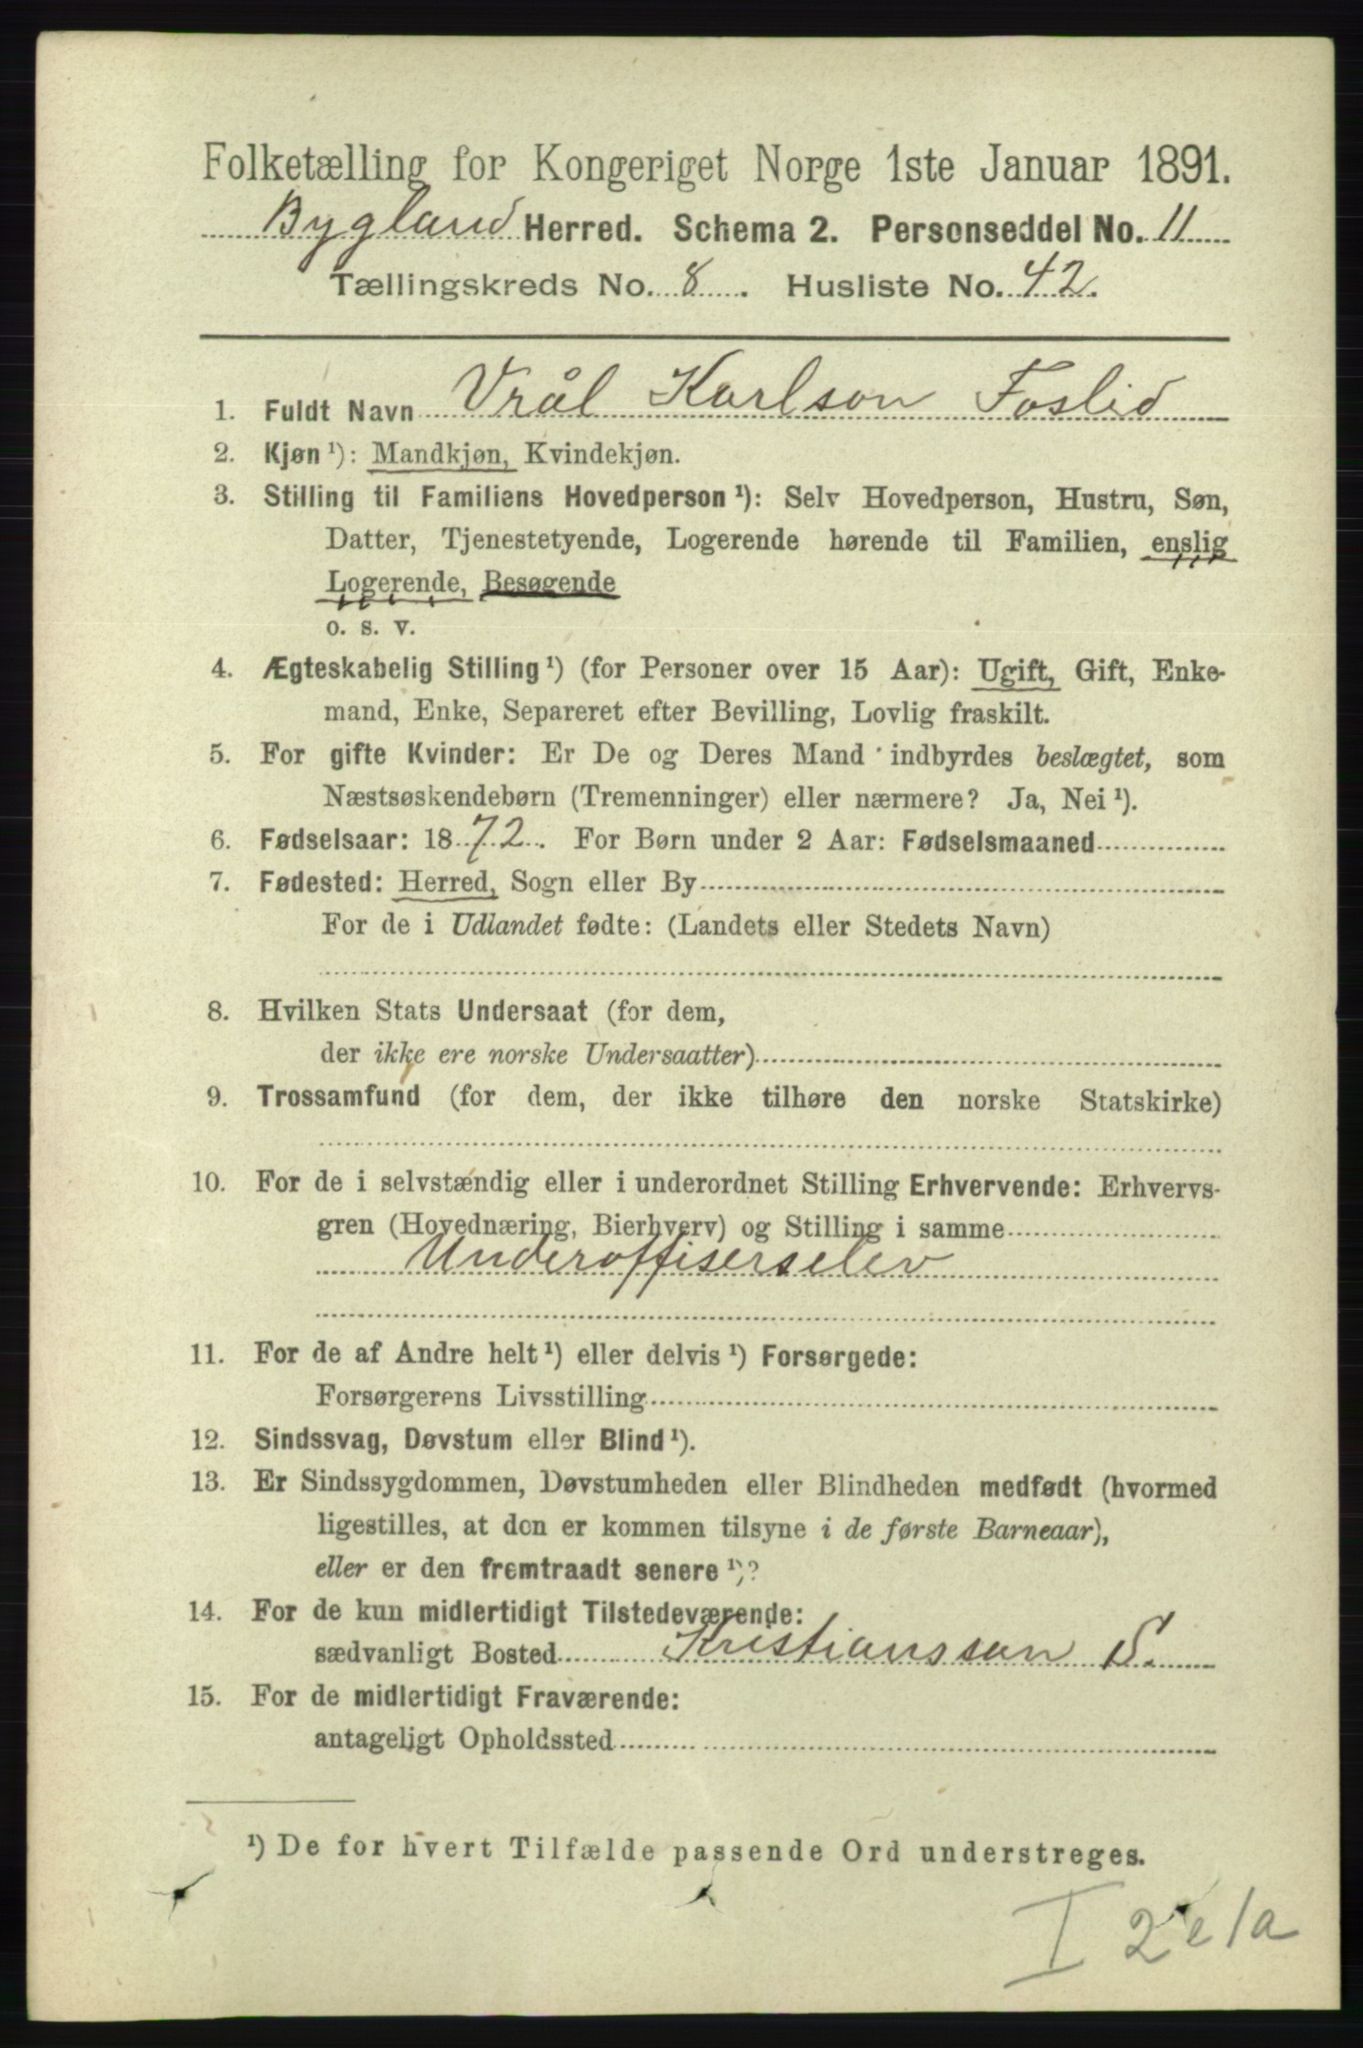 Folketælling for Kongeriget Norge 1ste Januar 1891.
Bygland Herred. Schema 2. Personseddel No. 11
Tællingskreds No. 8. Husliste No. 42.
1. Fuldt Navn Vrål Karlson Foslid
2. Kjøn ¹): Mandkjøn, Kvindekjøn.
3. Stilling til Familiens Hovedperson ¹): Selv Hovedperson, Hustru, Søn,
Datter, Tjenestetyende, Logerende hørende til Familien, enslig
Logerende, Besøgende
o. s. v.
4. Ægteskabelig Stilling ¹) (for Personer over 15 Aar): Ugift, Gift, Enke-
mand, Enke, Separeret efter Bevilling, Lovlig fraskilt.
5. For gifte Kvinder: Er De og Deres Mand indbyrdes beslægtet, som
Næstsøskendebørn (Tremenninger) eller nærmere? Ja, Nei ¹).
6. Fødselsaar: 1872. For Børn under 2 Aar: Fødselsmaaned
7. Fødested: Herred, Sogn eller By
For de i Udlandet fødte: (Landets eller Stedets Navn)
8. Hvilken Stats Undersaat (for dem,
der ikke ere norske Undersaatter)
9. Trossamfund (for dem, der ikke tilhøre den norske Statskirke)
10. For de i selvstændig eller i underordnet Stilling Erhvervende: Erhvervs-
gren (Hovednæring, Bierhverv) og Stilling i samme
Underoffiserselev
11. For de af Andre helt ¹) eller delvis ¹) Forsørgede:
Forsørgerens Livsstilling
12. Sindssvag, Døvstum eller Blind ¹).
13. Er Sindssygdommen, Døvstumheden eller Blindheden medfødt (hvormed
ligestilles, at den er kommen tilsyne i de første Barneaar),
eller er den fremtraadt senere ¹)?
14. For de kun midlertidigt Tilstedeværende:
sædvanligt Bosted Kristianssan S.
15. For de midlertidigt Fraværende:
antageligt Opholdssted
¹) De for hvert Tilfælde passende Ord understreges.
I 2e1a